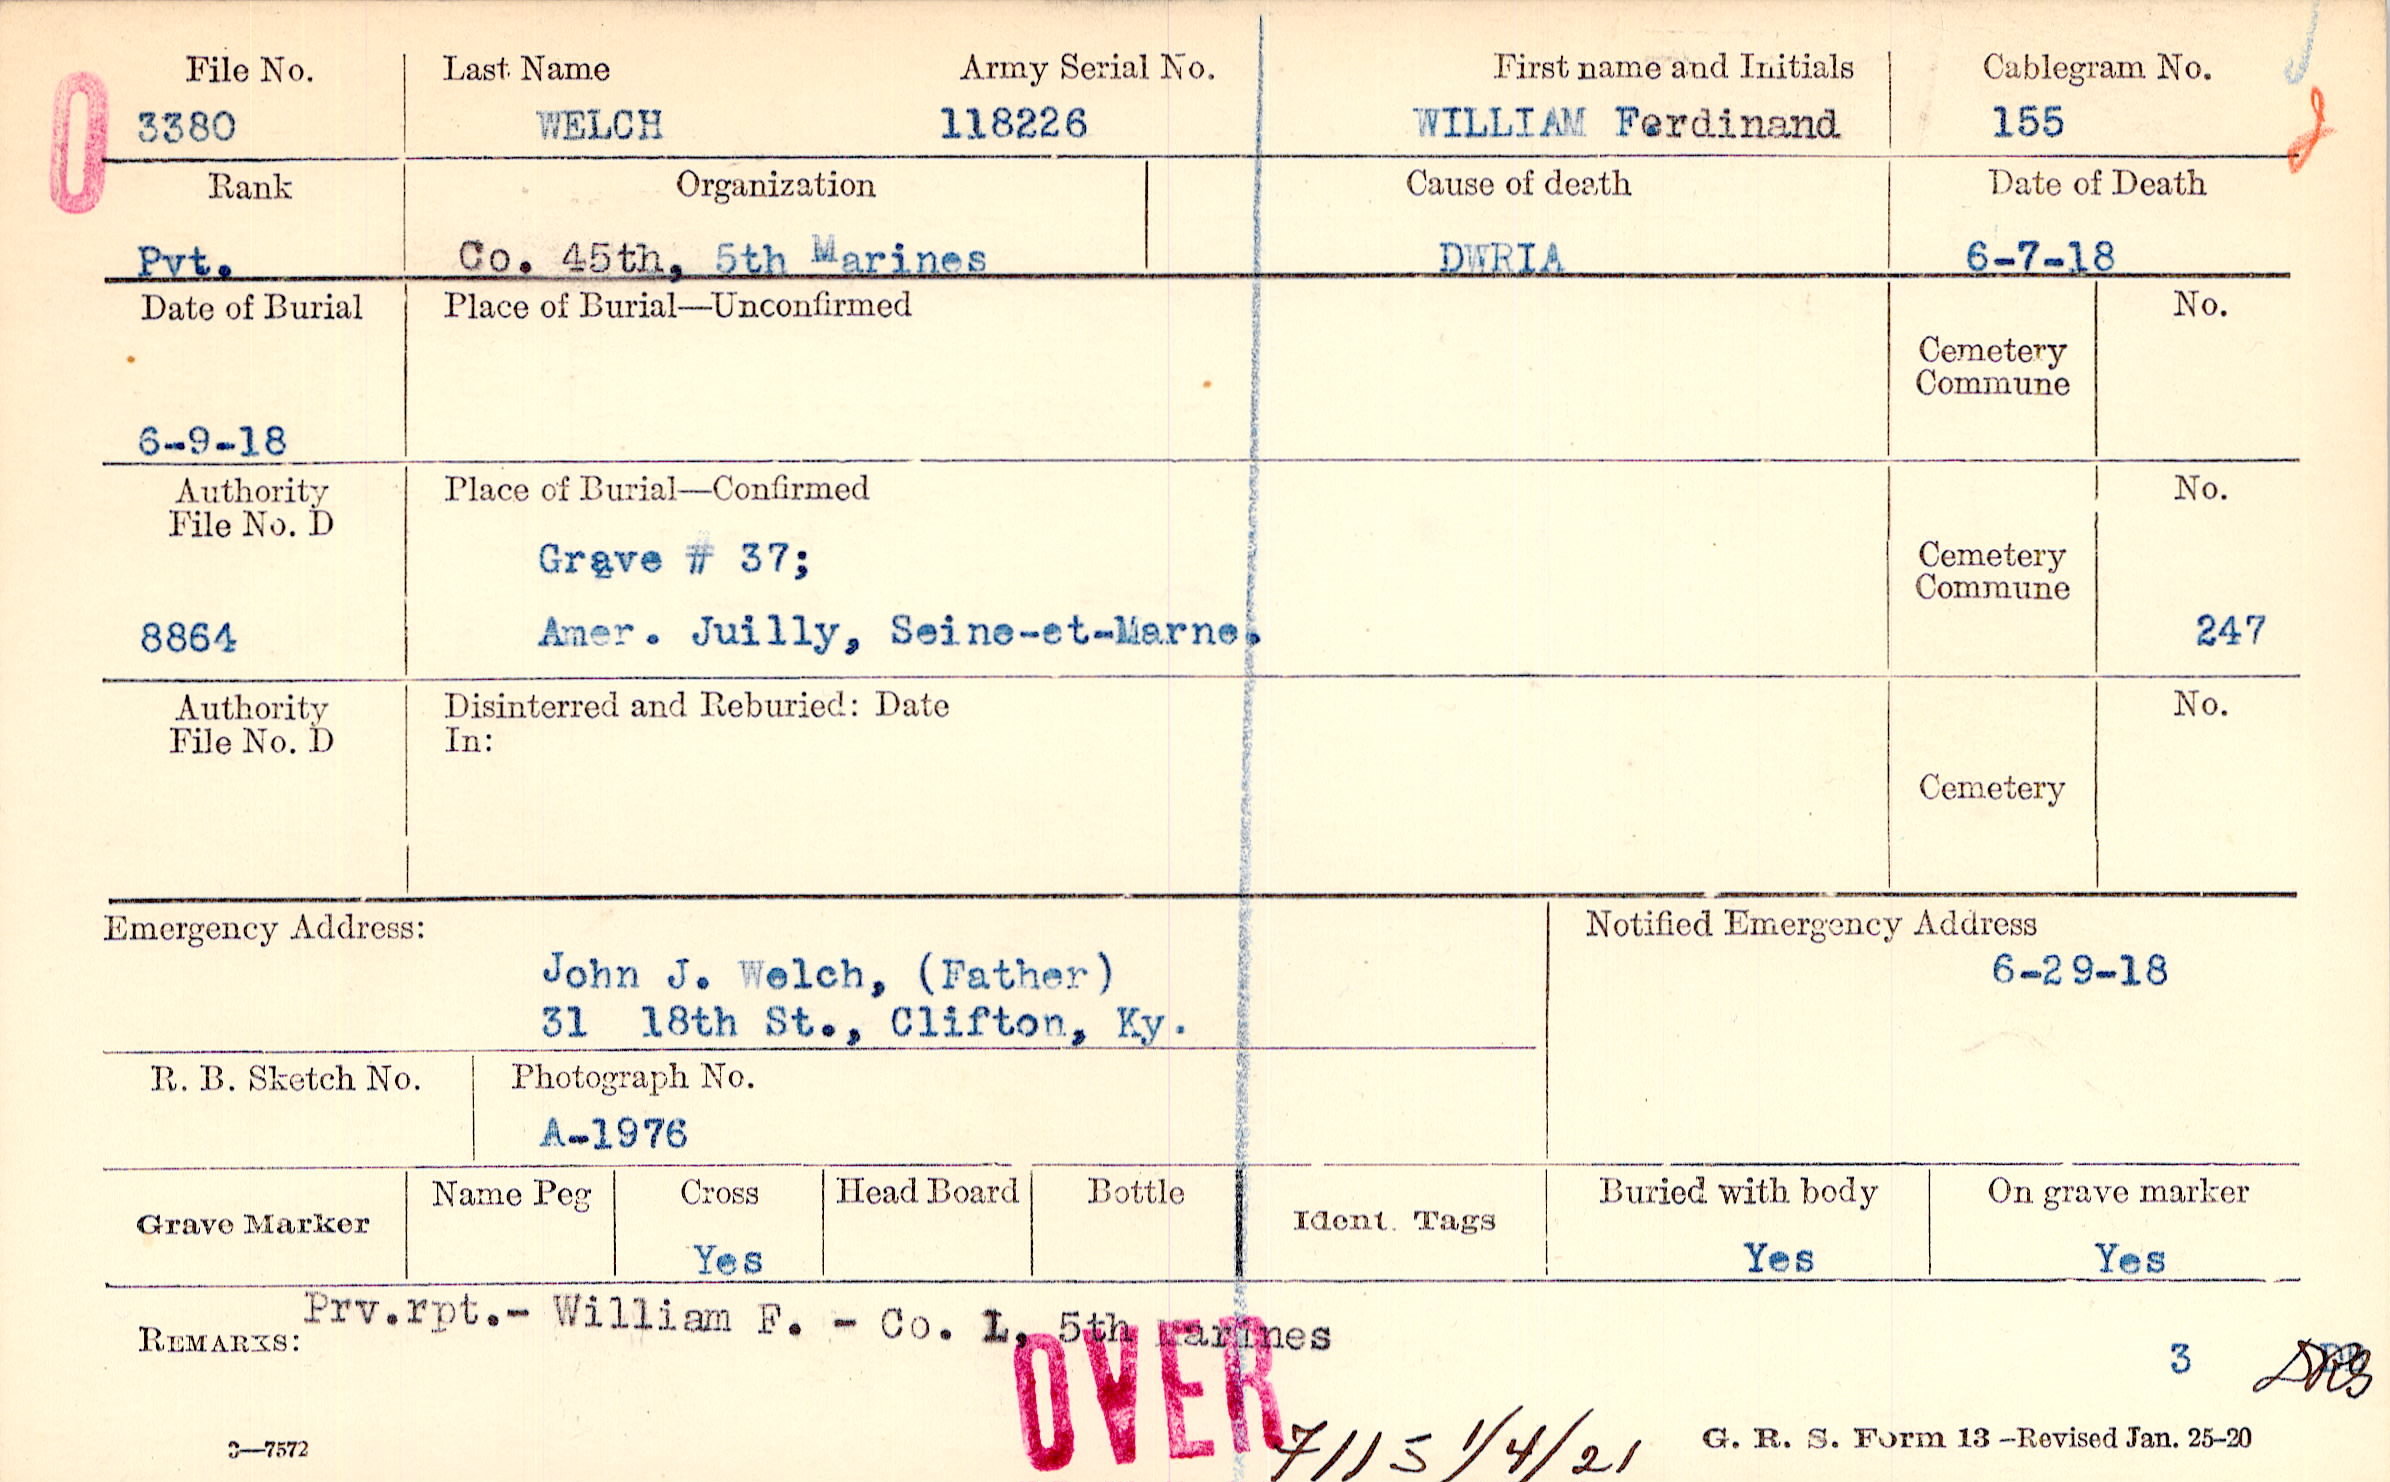 File No. Last Name Army Serial No. First name and Initials Cablegram No.
3380 WELCH 118226 WILLIAM Ferdinand 155
Rank Organization Cause of death Date of Death
Pvt. Co. 45th, 5th Marines DWRIA 6-7-18
Date of Burial Place of Burial—Unconfirmed No.
Cemetery
Commune
6-9-18
Authority Place of Burial—Confirmed No.
File No. D
Grave # 37;
Cemetery
Commune
8864 Amer. Juilly, Seine-et-Marne. 247
Authority Disinterred and Reburied: Date No.
File No. D In:
Cemetery
Emergency Address: Notified Emergency Address
John J. Welch, (Father) 6-29-18
31 18th St., Clifton, Ky.
R. B. Sketch No. Photograph No.
A-1976
Grave Marker Name Peg Cross Head Board Bottle Ident. Tags Buried with body On grave marker
Yes Yes Yes
Prv.rpt.- William F. - Co. L, 5th Marines
REMARKS:
3
OVER
7115 1/4/21
3—7572 G. R. S. Form 13 -Revised Jan. 25-20